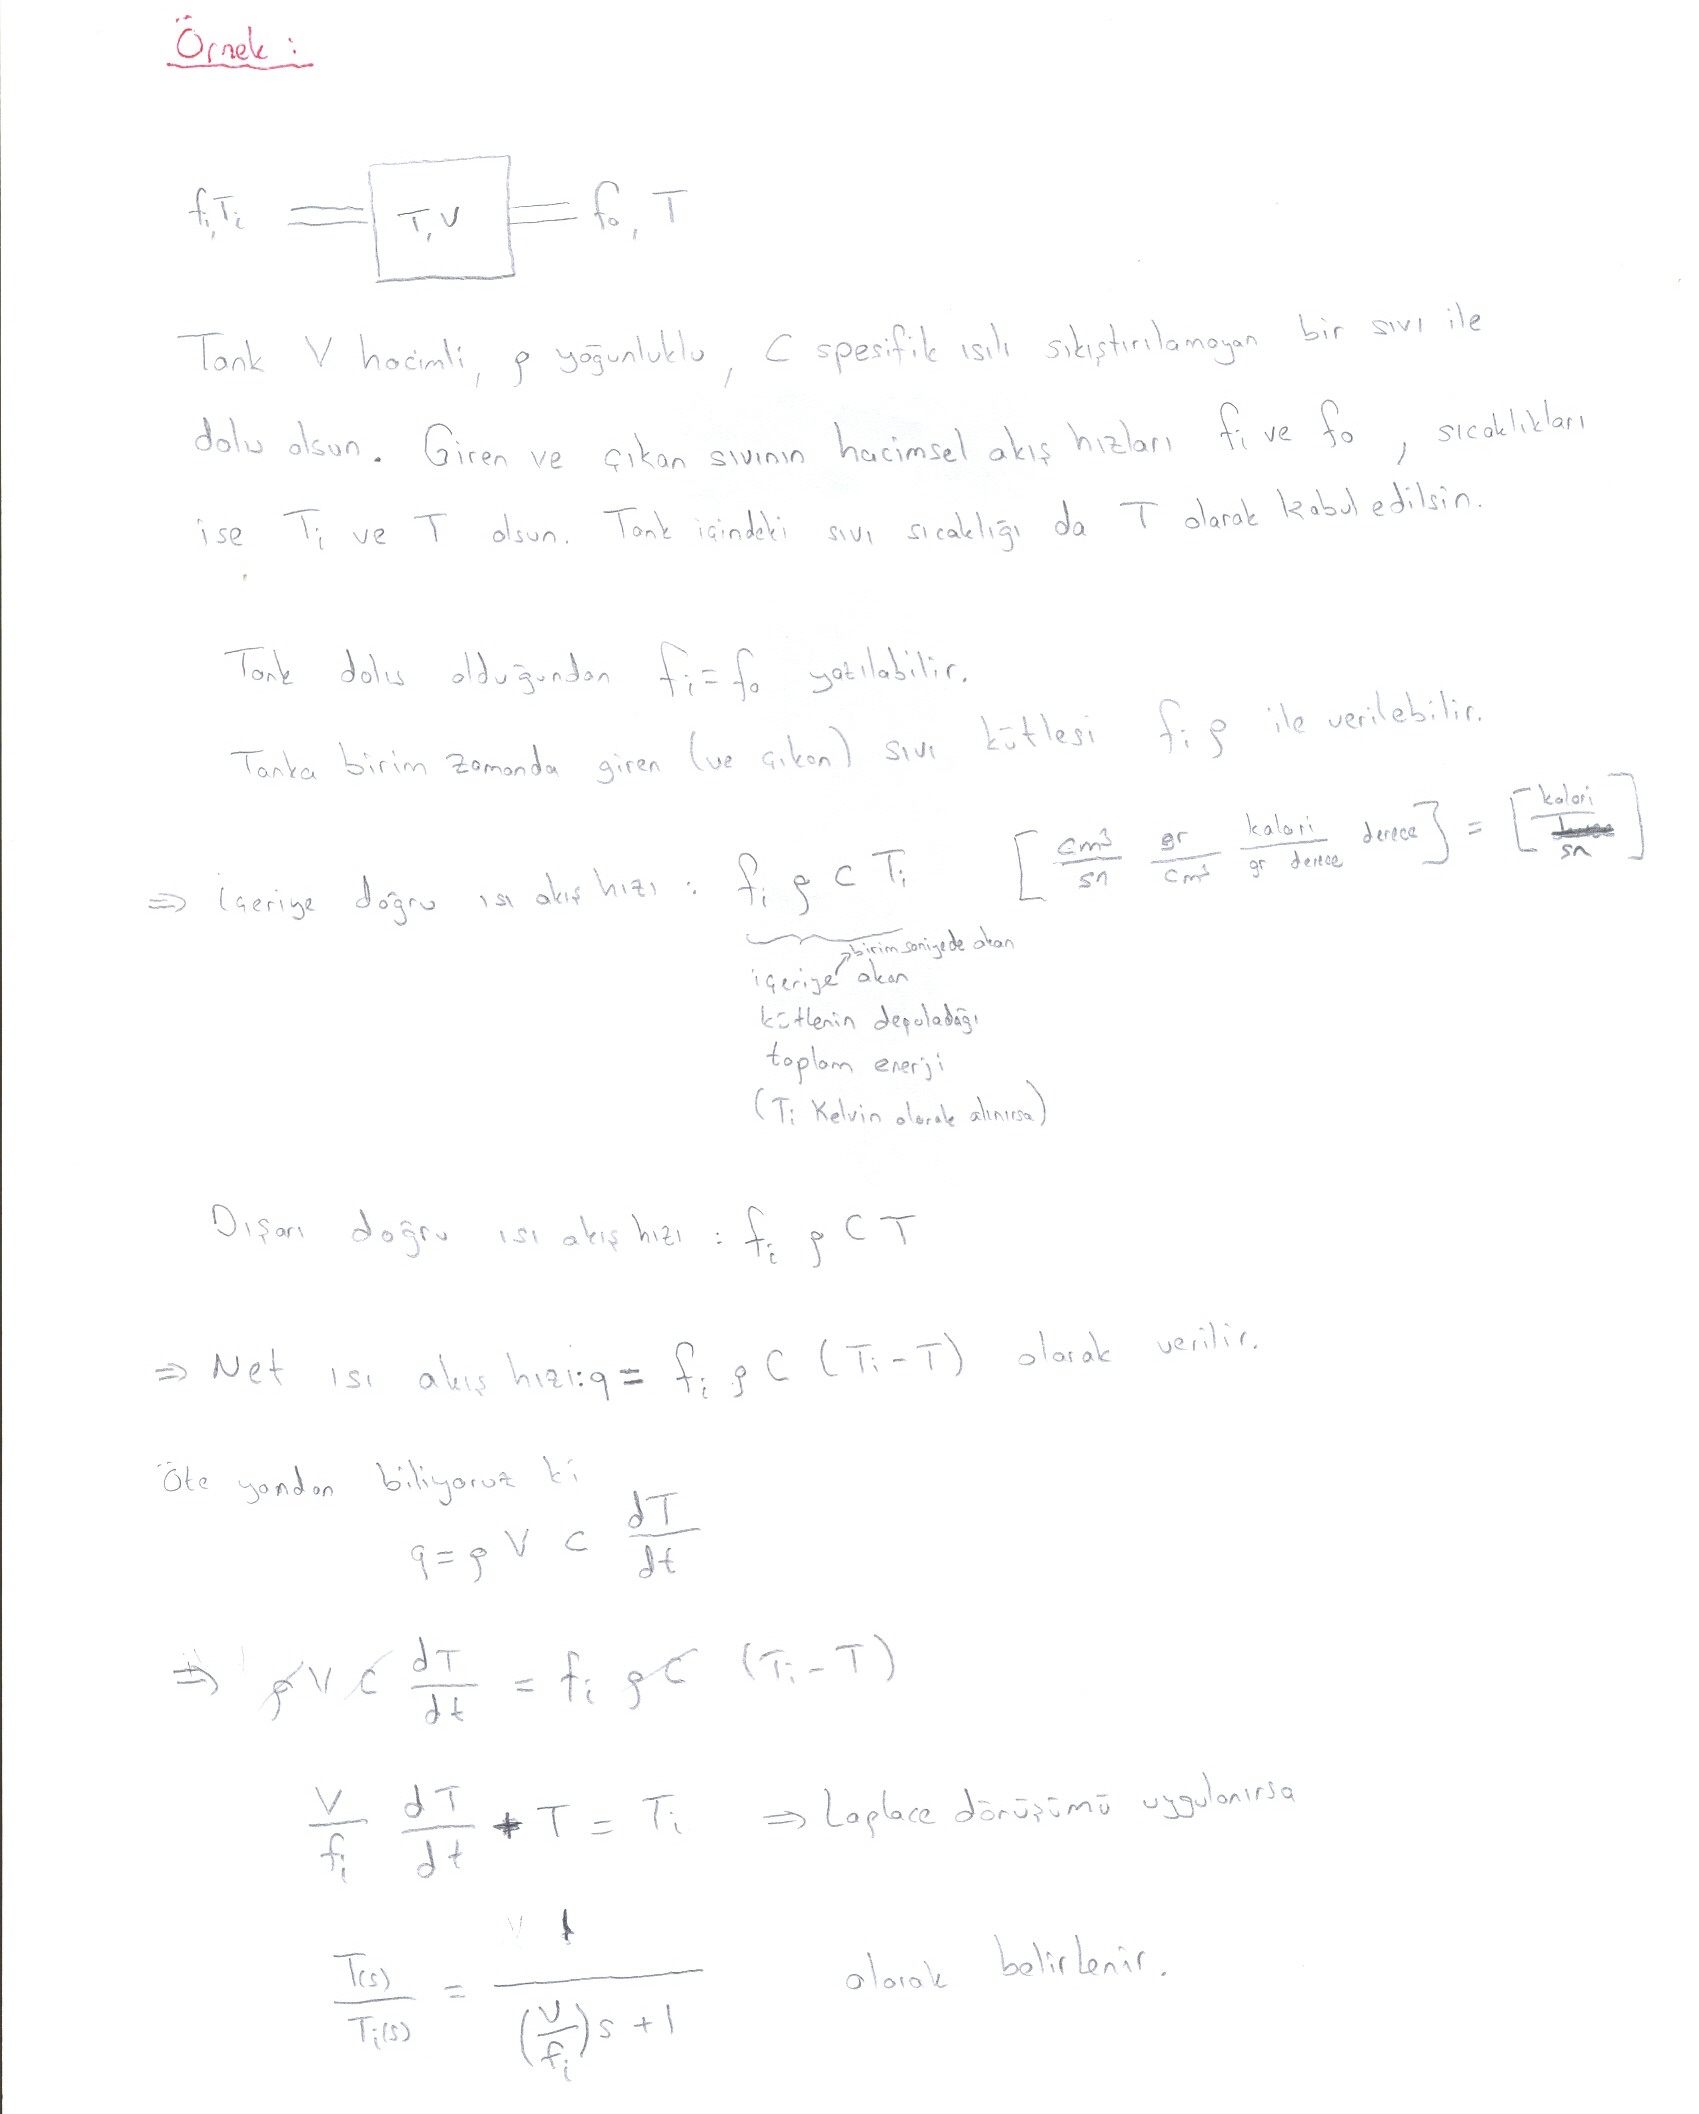 Örnek :
fi, Ti T, V fo, T
Tank V hacimli, ρ yoğunluklu, C spesifik ısılı sıkıştırılamayan bir sıvı ile
dolu olsun. Giren ve çıkan sıvının hacimsel akış hızları fi ve fo , sıcaklıkları
ise Ti ve T olsun. Tank içindeki sıvı sıcaklığı da T olarak kabul edilsin.
Tank dolu olduğundan fi = fo yazılabilir.
Tanka birim zamanda giren (ve çıkan) sıvı kütlesi fi ρ ile verilebilir.
⇒ İçeriye doğru ısı akış hızı : fi ρ C Ti [cm³/sn gr/cm³ kalori/gr derece derece] = [kalori/sn]
birim saniyede akan
içeriye akan
kütlenin depoladığı
toplam enerji
(Ti Kelvin olarak alınırsa)
Dışarı doğru ısı akış hızı : fi ρ C T
⇒ Net ısı akış hızı: q = fi ρ C (Ti - T) olarak verilir.
Öte yandan biliyoruz ki
q = ρ V C dT/dt
⇒ ρ V C dT/dt = fi ρ C (Ti - T)
V/fi dT/dt + T = Ti ⇒ Laplace dönüşümü uygulanırsa
T(s)/Ti(s) = 1/((V/fi)s + 1) olarak belirlenir.